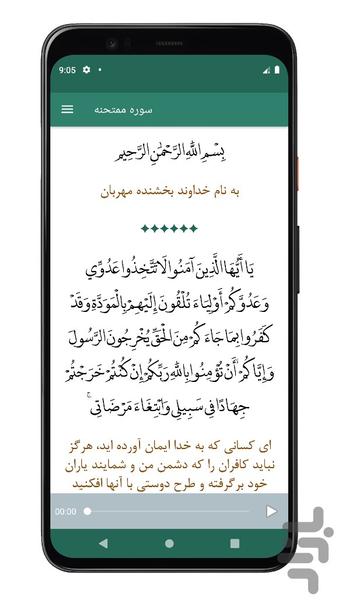 9:05
سوره ممتحنه
بِسْمِ اللَّهِ الرَّحْمَٰنِ الرَّحِيمِ
به نام خداوند بخشنده مهربان
يَا أَيُّهَا الَّذِينَ آمَنُوا لَا تَتَّخِذُوا عَدُوِّي
وَعَدُوَّكُمْ أَوْلِيَاءَ تُلْقُونَ إِلَيْهِمْ بِالْمَوَدَّةِ وَقَدْ
كَفَرُوا بِمَا جَاءَكُمْ مِنَ الْحَقِّ يُخْرِجُونَ الرَّسُولَ
وَإِيَّاكُمْ أَنْ تُؤْمِنُوا بِاللَّهِ رَبِّكُمْ إِنْ كُنْتُمْ خَرَجْتُمْ
جِهَادًا فِي سَبِيلِي وَابْتِغَاءَ مَرْضَاتِي ۚ
ای کسانی که به خدا ایمان آورده اید، هرگز
نباید کافران را که دشمن من و شمایند یاران
خود برگرفته و طرح دوستی با آنها افکنید
00:00
بازار